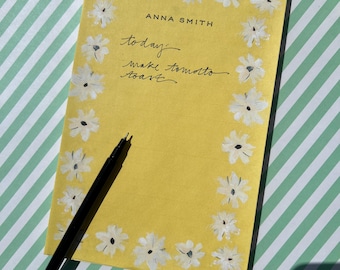 ANNA SMITH
today:
make tomato
toast